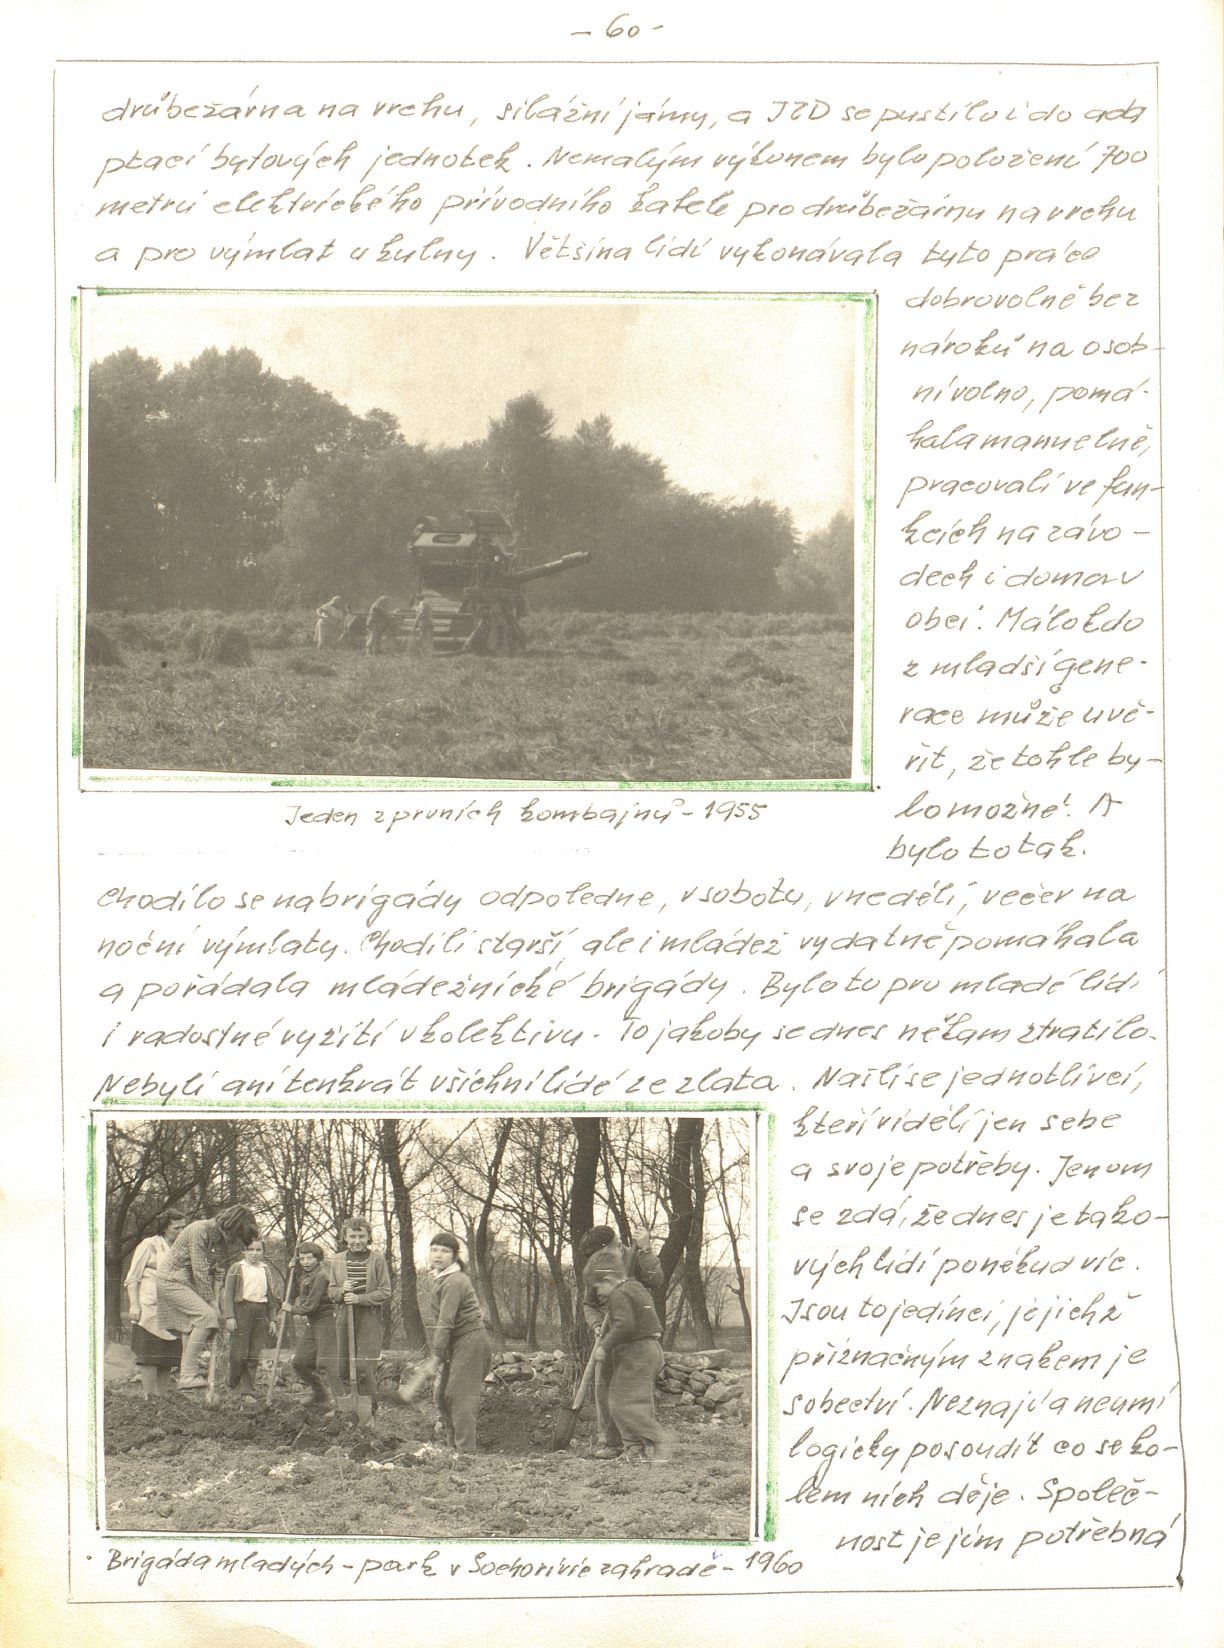 - 60 -
drůbežárna na vrchu, silážní jámy, a JZD se pustilo i do ada
ptací bytových jednotek. Nemalým výkonem bylo položení 700
metrů elektrického přívodního kabele pro drůbežárnu na vrchu
a pro výmlat u kulny. Většina lidí vykonávala tyto práce
dobrovolně bez
nároků na osob-
ní volno, pomá-
hala manuelně,
pracovali ve fun-
kcích na závo-
dech i doma v
obci. Málokdo
z mladší gene-
race může uvě-
řit, že tohle by-
lo možné! A
bylo to tak.
Jeden z prvních kombajnů - 1955
Chodilo se na brigády odpoledne, v sobotu, v neděli, večer na
noční výmlaty. Chodili starší, ale i mládež vydatně pomáhala
a pořádala mládežnické brigády. Bylo to pro mladé lidi
i radostné vyžití v kolektivu. To jakoby se dnes někam ztratilo.
Nebyli ani tenkrát všichni lidé ze zlata. Našli se jednotlivci,
kteří viděli jen sebe
a svoje potřeby. Jenom
se zdá, že dnes je tako-
vých lidí poněkud víc.
Jsou to jedinci, jejichž
příznačným znakem je
sobectví. Neznají a neumí
logicky posoudit co se ko-
lem nich děje. Společ-
nost je jim potřebná
Brigáda mladých - park v Sochorivie zahradě - 1960